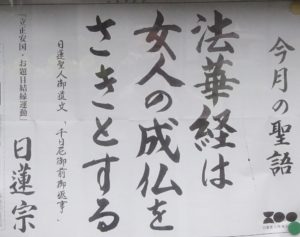 今月の聖語
法華経は
女人の成仏を
さきとする
日蓮聖人御遺文「千日尼御前御返事」
「立正安国・お題目結縁運動」
日蓮宗